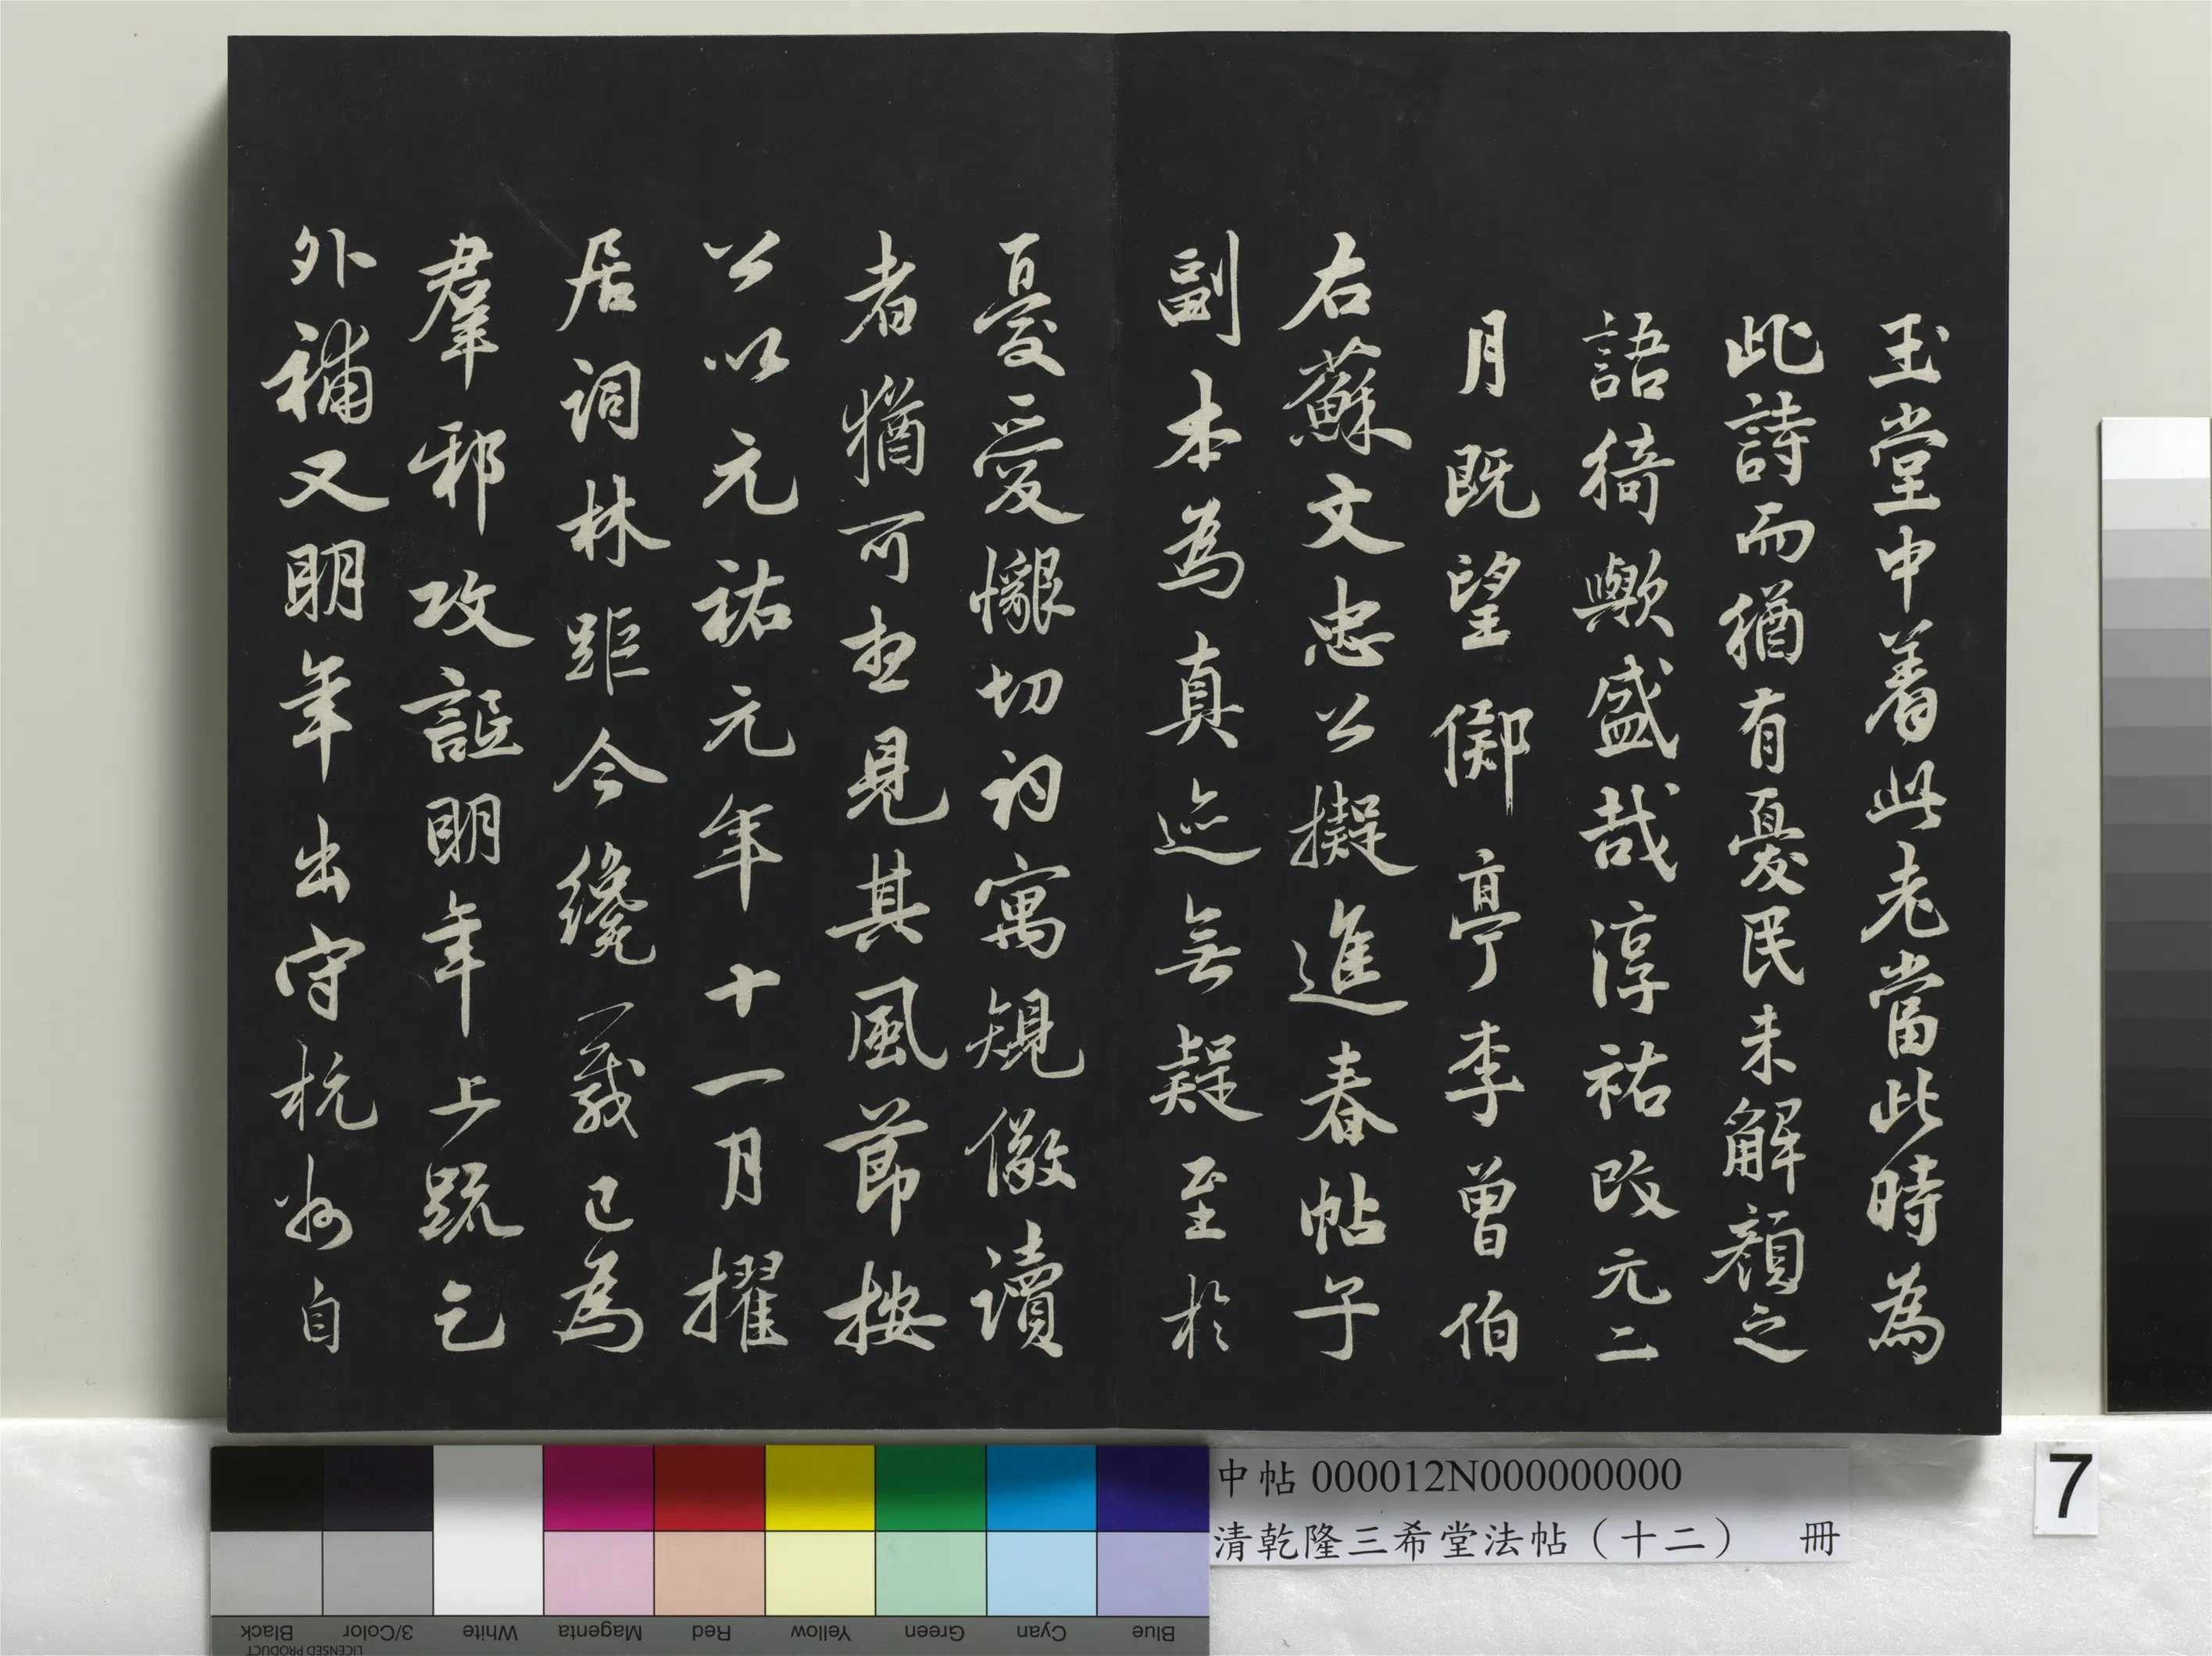 玉堂中着此老當此時為
此詩而猶有憂民未解顏之
語猗歟盛哉淳祐改元二
月既望鄉亭李曾伯
右蘇文忠公擬進春帖子
副本為真迹無疑至於
憂愛懇切詞寓規儆讀
者猶可想見其風節按
公以元祐元年十一月擢
居詞林距今纔一載已為
羣邪攻詆明年上疏乞
外補又明年出守杭州自
中帖 000012N000000000
清乾隆三希堂法帖（十二） 冊
7
Black
3/Color
White
Magenta
Red
Yellow
Green
Cyan
Blue
LICENSED PRODUCT